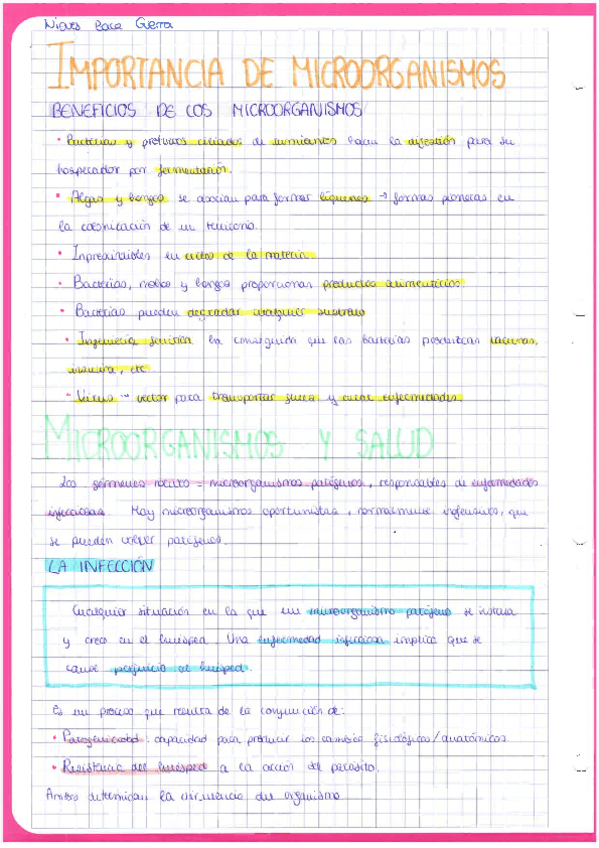 Nieves Baca Guerra
IMPORTANCIA DE MICROORGANISMOS
BENEFICIOS DE LOS MICROORGANISMOS
• Bacterias y protozoos ciliados de rumiantes hacen la digestión para su
hospedador por fermentación.
• Algas y hongos se asocian para formar líquenes → formas pioneras en
la colonización de un territorio.
• Inprescindibles en ciclos de la materia.
• Bacterias, mohos y hongos proporcionan productos alimenticios.
• Bacterias pueden degradar cualquier sustrato
• Ingeniería genética ha conseguido que las bacterias produzcan vacunas,
insulina, etc
• Virus → vector para transportar genes y curar enfermedades.
MICROORGANISMOS Y SALUD
Los gérmenes nocivos = microorganismos patógenos, responsables de enfermedades
infecciosas. Hay microorganismos oportunistas, normalmente inofensivos, que
se pueden volver patógenos.
LA INFECCIÓN
Cualquier situación en la que un microorganismo patógeno se instala
y crece en el huésped. Una enfermedad infecciosa implica que se
cause perjuicio al huésped.
Es un proceso que resulta de la conjunción de:
• Patogenicidad: capacidad para producir los cambios fisiológicos/anatómicos.
• Resistencia del huésped a la acción del parásito.
Ambos determinan la virulencia del organismo